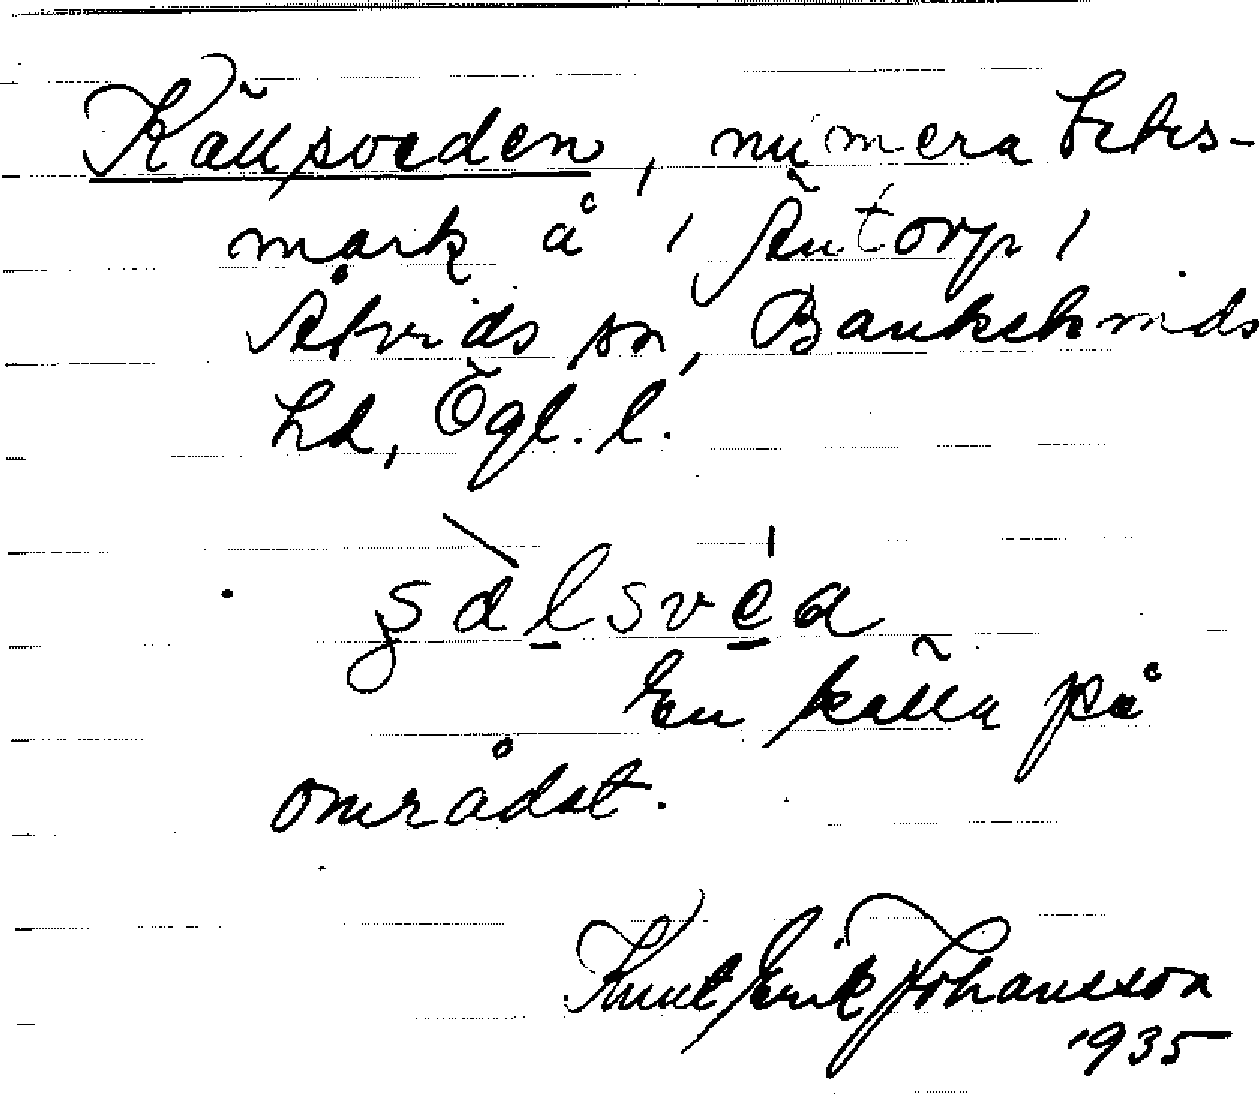 Källsveden, numera betes-
mark å / Äntorp /
Åtvids sn, Bankekinds
hd, Ögl. l.
En källa på
området.
Knut Erik Johansson
1935